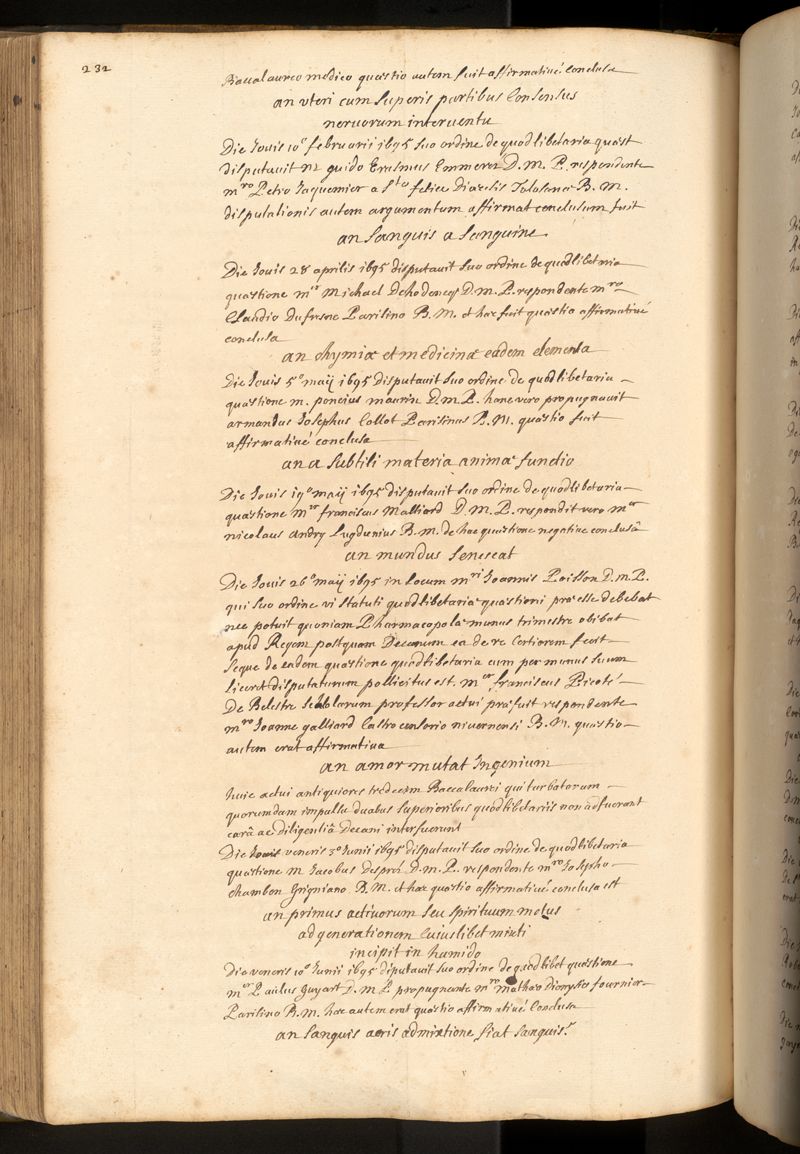 232
Baccalaureo medico quæstio autem fuit affirmatiué conclusa
an vteri cum superis partibus consensus
neruorum interuentu
Die Jouis 10° februarii 1695 suo ordine de quodlibetaria quæst
disputauit M guido Erasmus Emmerez D. M. P. respondente
mro Petro Jaquemier a Sto felice Diæcesis Tolosanæ B. M.
disputationis autem argumentum affirmat conclusum fuit
an sanguis a sanguine
Die Jouis 28 aprilis 1695 disputauit suo ordine de quodlibetaria
quæstione mer Michael Dehodencq D. M. P. respondente mro
Claudio Dufresne Parisino B. M. et hæc fuit quæstio affirmatiué
conclusa
an chymiæ et medicinæ eadem elementa
Die Jouis 5° maij 1695 disputauit suo ordine de quodlibetaria
quæstione m. poncius maurin D. m. P. hanc vero propugnauit
armandus Josephus Collot Parisinus B. M. quæstio fuit
affirmatiué conclusa
an a subtili materia animæ functio
Die Jouis 19° maij 1695 disputauit suo ordine de quodlibetaria
quæstione mer franciscus Malliard D. M. P. respondit vero mer
nicolaus andry Lugdunius B. m. de hac quæstione negatiue conclusâ
an mundus senescat
Die Jouis 26° maij 1695 in locum mri Joannis Poisson D. m. P.
qui suo ordine vi statuti quodlibetariæ quæstioni præesse debebat
nec potuit quoniam Pharmacopolæ munus trimestre obibat
apud Regem postquam Decanum ea de re certiorem fecit
seque de eadem quæstione quodlibetaria cum per munus suum
liceret disputaturum pollicitus est. mer franciscus Picoté
De Belestre scholarum professor actui præfuit respondente
mro Joanne galliard Castro censorio niuernensi B. M. quæstio
autem erat affirmatiua
an amor mutat Ingenium
huic actui antiquiores tredecim Baccalaurei qui turbatorum
quorumdam impulsu duabus superioribus quodlibetariis non adfuerant
curâ ac diligentiâ Decani interfuerunt
Die Jouis veneris 3° Junii 1695 disputauit suo ordine de quodlibetaria
quæstione M Jacobus Desprez D. m. P. respondente mro Josepho
chambon Grignano B. M. et hæc quæstio affirmatiué conclusa est
an primus actiuorum seu spirituum motus
ad generationem cuiuslibet mixti
incipit in humido
Die veneris 10° Junii 1695 diputauit suo ordine de quodlibet quæstione
mer Paulus Guyart D. M. P. propugnante mro mathæo Dionysio fournier
Parisino B. M. hæc autem erat quæstio affirmatiué conclusa
an sanguis aeris admixtione fiat sanguis.